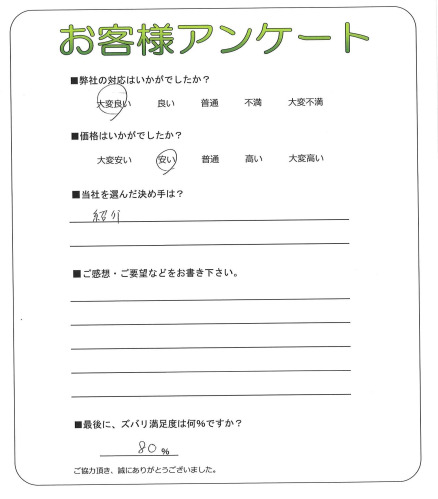 お客様アンケート
■弊社の対応はいかがでしたか？
大変良い 良い 普通 不満 大変不満
■価格はいかがでしたか？
大変安い 安い 普通 高い 大変高い
■当社を選んだ決め手は？
紹介
■ご感想・ご要望などをお書き下さい。
■最後に、ズバリ満足度は何％ですか？
80 ％
ご協力頂き、誠にありがとうございました。